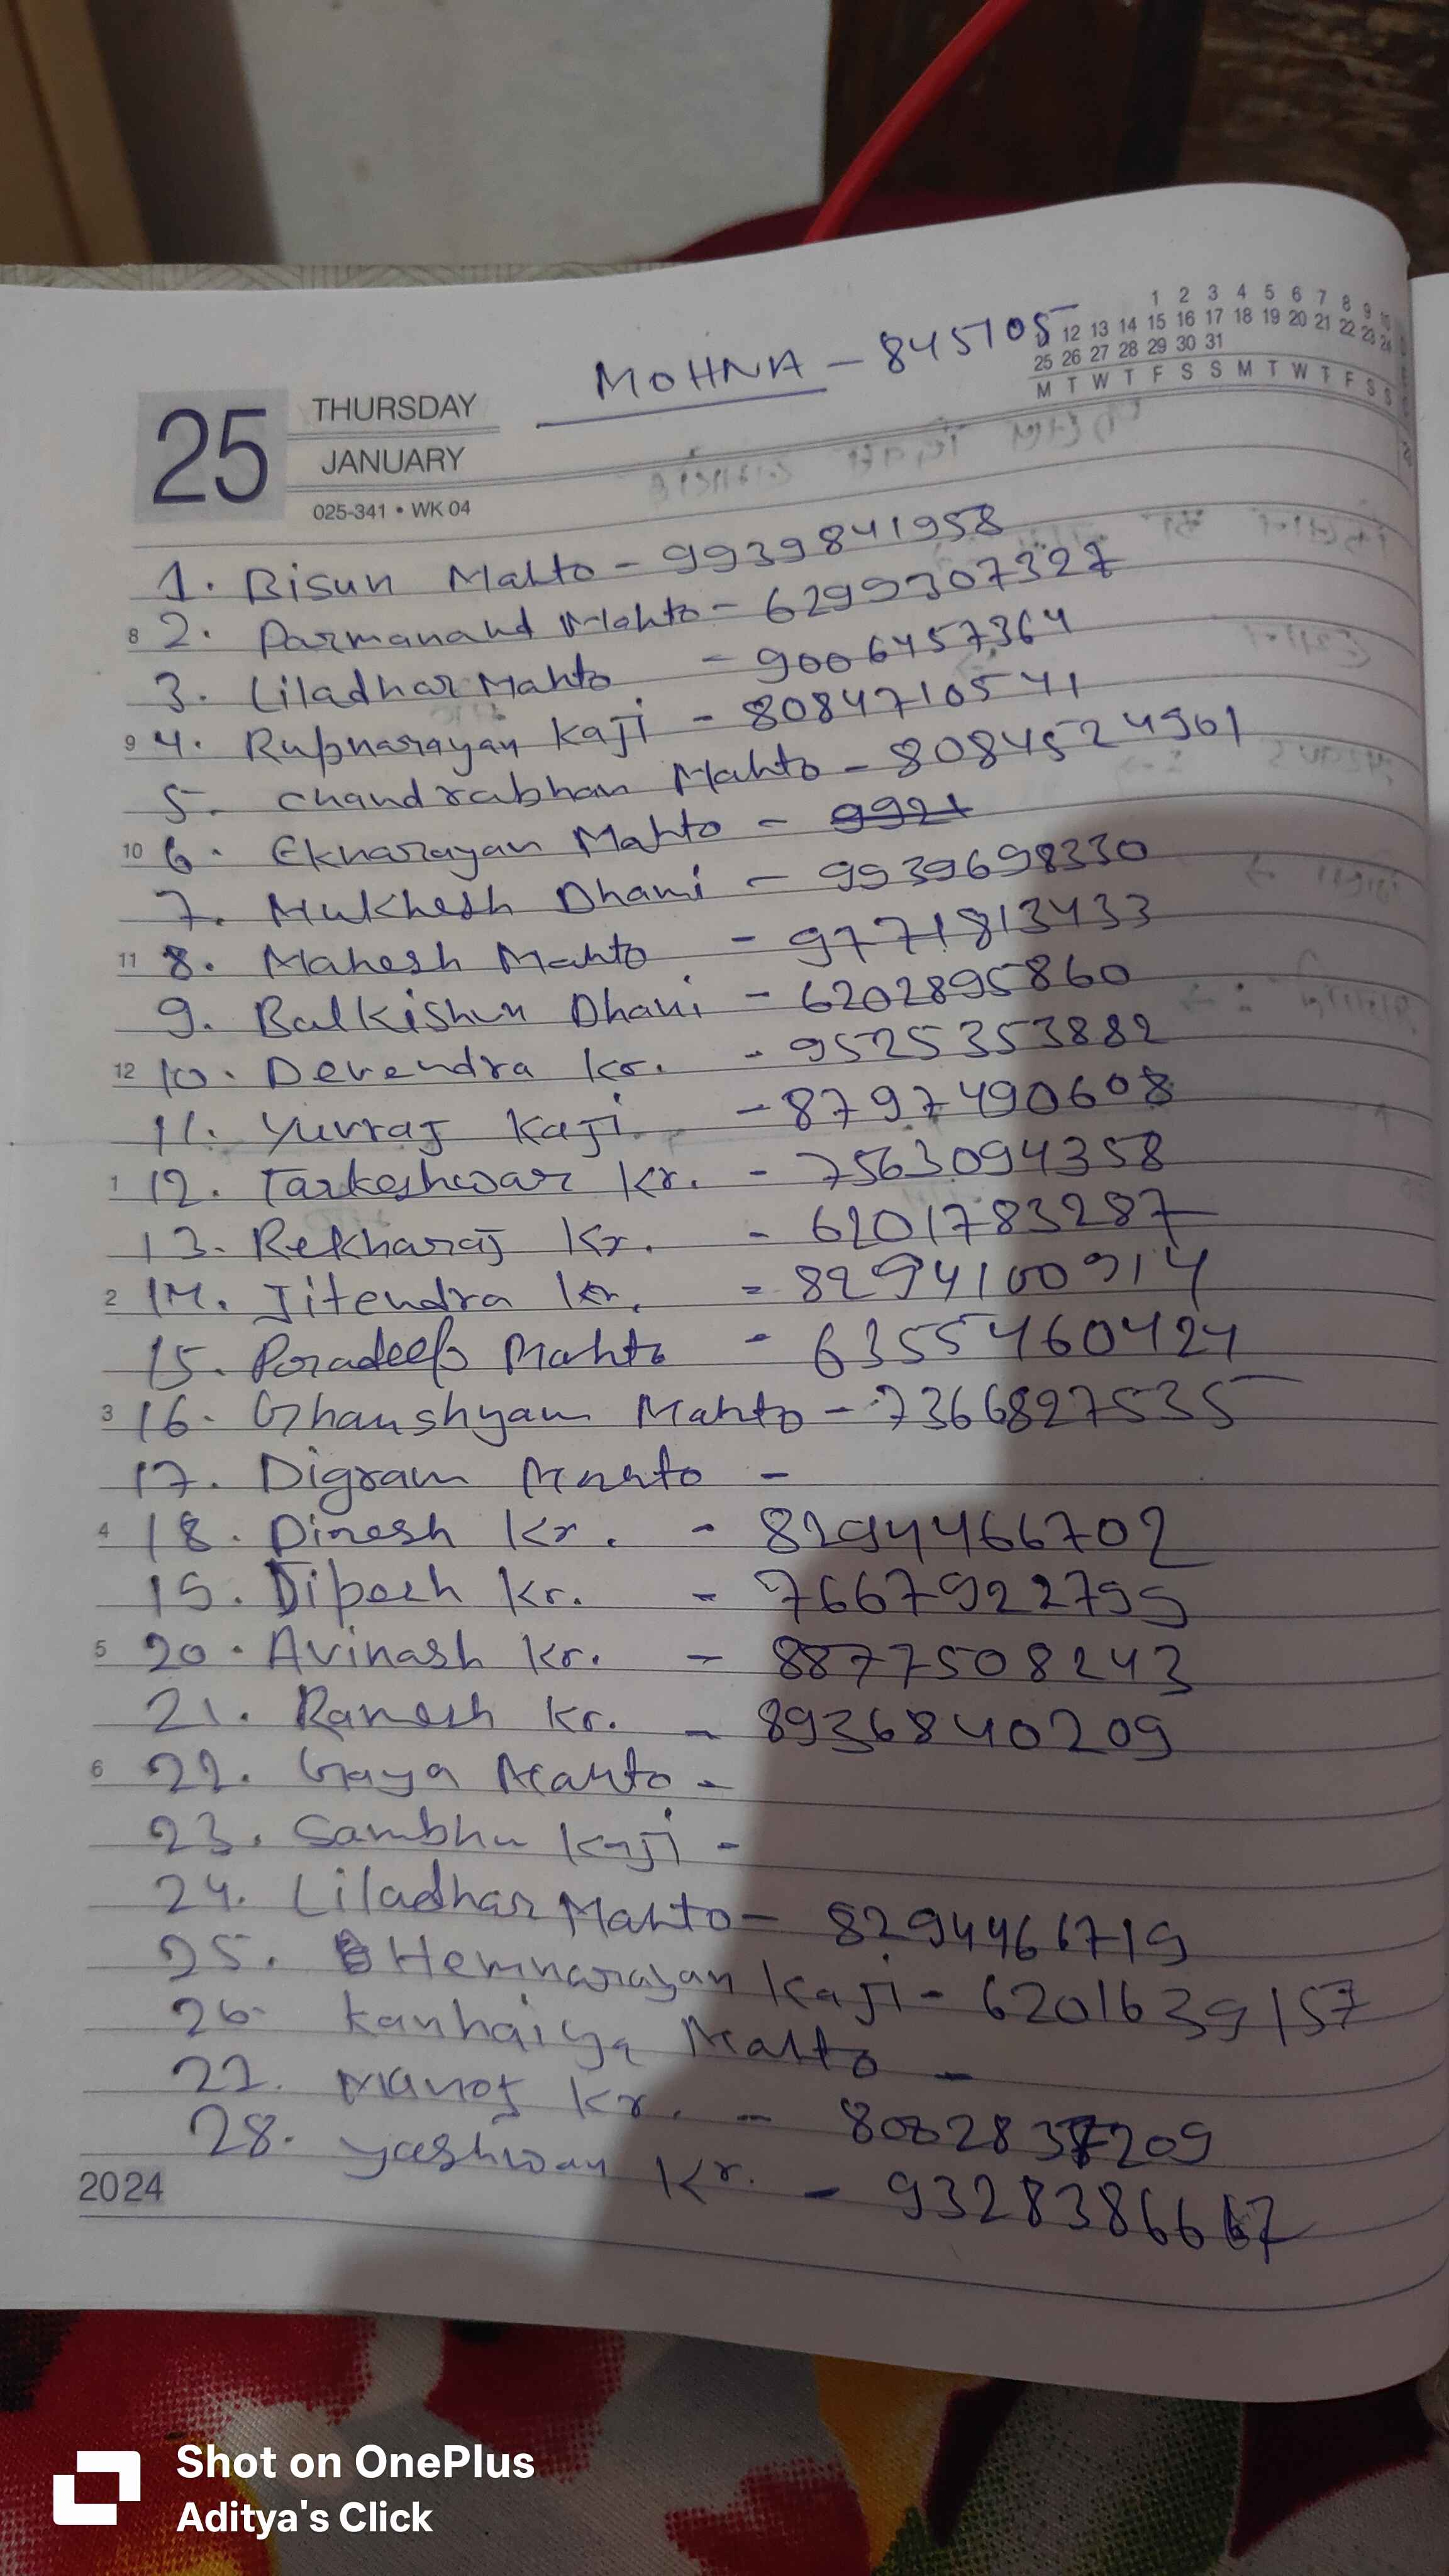 MOHNA - 845105
1 2 3 4 5 6 7 8 9 10
12 13 14 15 16 17 18 19 20 21 22 23 24
25 26 27 28 29 30 31
M T W T F S S M T W T F S S
25 THURSDAY
JANUARY
025-341 • WK 04
1. Bisun Mahto - 9939841958
8 2. Parmanand Mahto - 6299307327
3. Liladhar Mahto - 9006457364
9 4. Rupnarayan Kaji - 8084710541
5. Chandrabhan Mahto - 8084524961
10 6. Eknarayan Mahto - 992+
7. Mukhesh Dhami - 9939698330
11 8. Mahesh Mahto - 9771813433
9. Balkishun Dhami - 6202895860
12 10. Devendra Kr. - 9525353882
11. Yuvraj Kaji - 8797490608
1 12. Tarkeshwar Kr. - 7563094358
13. Rekharaj Kr. - 6201783287
2 14. Jitendra Kr. - 8294100914
15. Poradeep Mahto - 6355460424
3 16. Ghanshyam Mahto - 7366827535
17. Digram Mahto -
4 18. Dinesh Kr. - 8294466702
19. Dipesh Kr. - 7667922799
5 20. Avinash Kr. - 8877508243
21. Ramesh Kr. - 8936840209
6 22. Gaya Mahto -
23. Sambhu Kaji -
24. Liladhar Mahto - 8294466719
25. Hemnarayan Kaji - 6201639157
26. Kanhaiya Mahto -
27. Manoj Kr. -
28. Yashwan Kr. -
2024
Shot on OnePlus
Aditya's Click